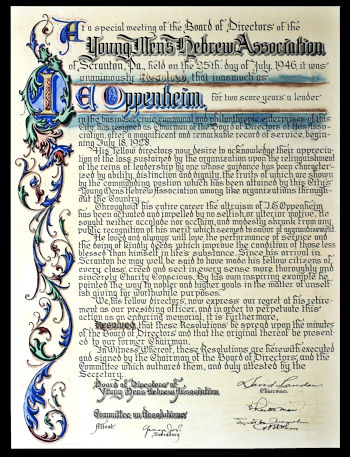 At a special meeting of the Board of Directors of the
Young Men's Hebrew Association,
of Scranton, Pa., held on the 25th. day of July 1946, it was
unanimously Resolved, that inasmuch as
I E Oppenheim,
for two score years a leader
in the business civic communal and philanthropic enterprises of this
City, has resigned as Chairman of the Board of Directors of this Asso-
ciation, after a magnificent and remarkable record of service, begin-
ning July 18, 1928.
His fellow directors now desire to acknowledge their apprecia-
tion of the loss sustained by the organization upon the relinquishment
of the reins of leadership by one whose guidance has been character-
ized by ability, distinction and dignity, the fruits of which are shown
by the commanding position which has been attained by this City's
Young Mens Hebrew Association among like organizations through-
out the Country.
Throughout his entire career the altruism of I.E. Oppenheim
has been actuated and impelled by no selfish, or ulterior motive. He
sought neither accolade nor acclaim, and modestly shrank from any
public recognition of his merit which seemed to savor of aggrandizement.
He loved and always will love the performance of service and
the doing of kindly deeds which improve the condition of those less
blessed than himself in life's substance. Since his arrival in
Scranton he may well be said to have made his fellow citizens of
every class, creed and sect in every sense more thoroughly and
sincerely Charity Conscious. By his own inspiring example he
pointed the way to nobler and higher goals in the matter of unself-
ish giving for worthwhile purposes.
We, his fellow directors, now express our regret at his retire-
ment as our presiding officer, and in order to perpetuate this
action as an enduring memorial, it is furthermore,
Resolved, that these Resolutions be spread upon the minutes
of the Board of Directors and that the original thereof be present-
ed to our former Chairman.
In Witness Whereof, these Resolutions are herewith executed
and signed by the Chairman of the Board of Directors, and the
Committee which authored them, and duly attested by the
Secretary.
Board of Directors of
Young Mens Hebrew Association,
Chairman.
Committee on Resolutions
Attest:
Secretary